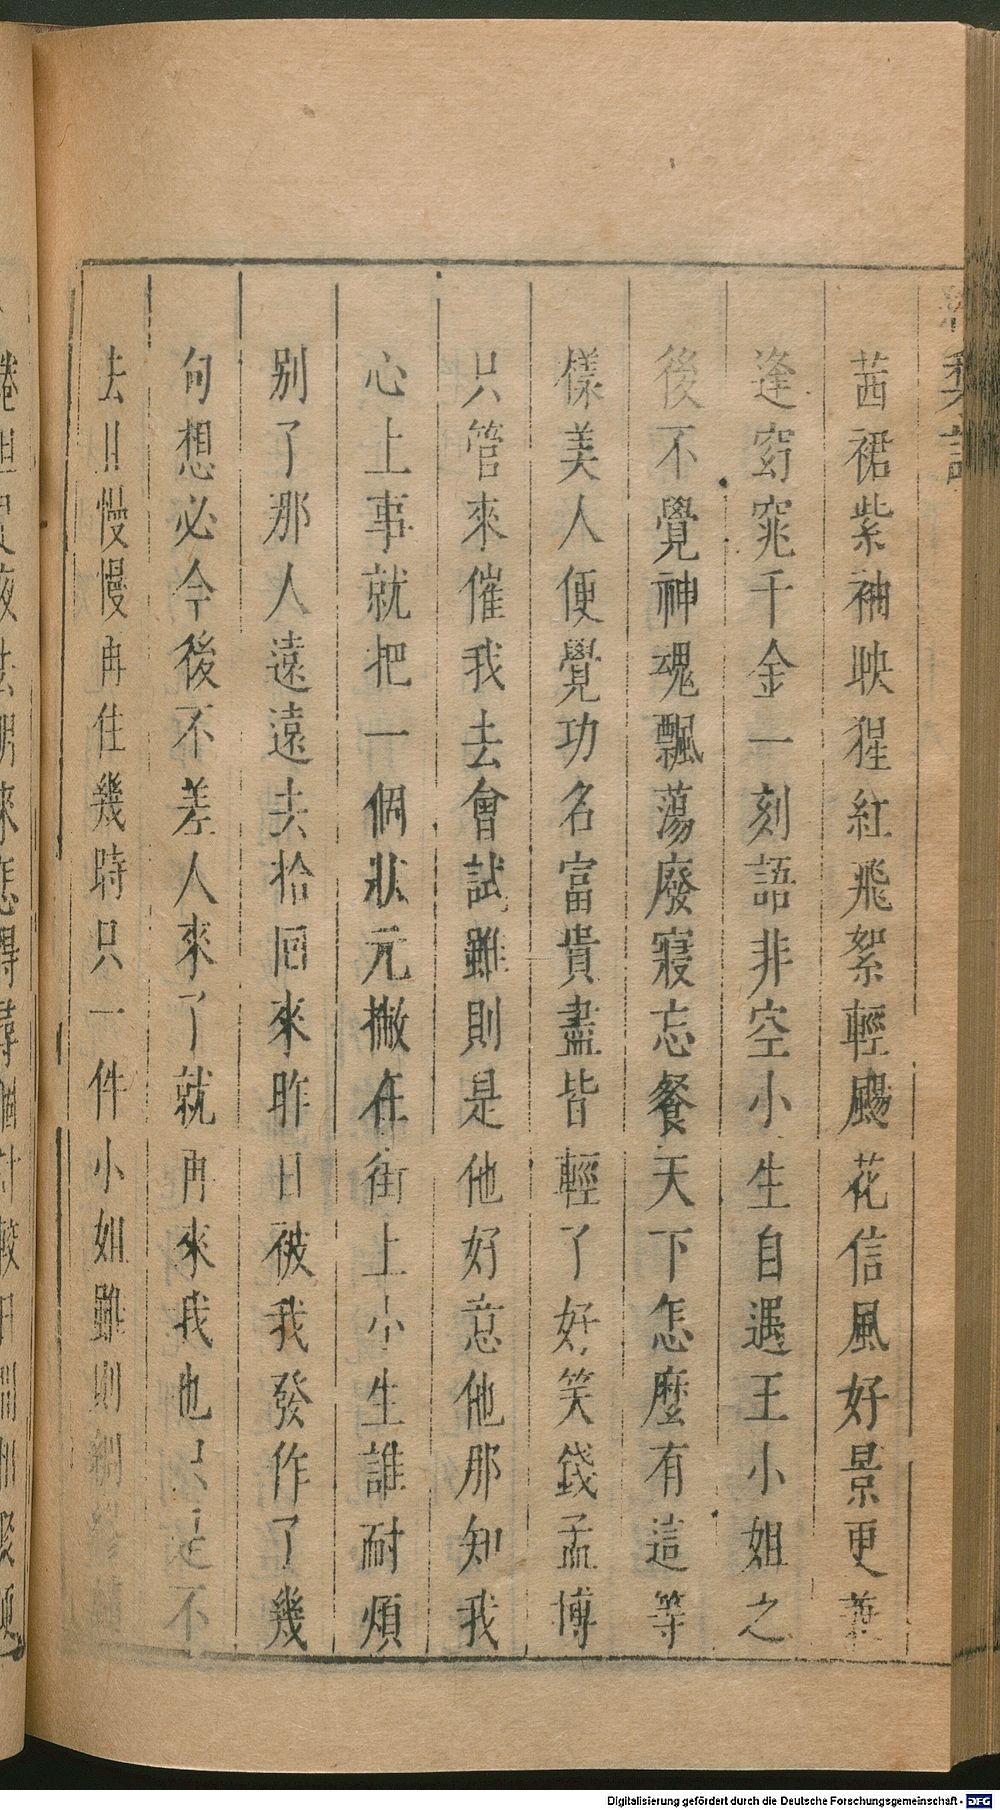 茜裙紫袖映猩紅飛絮輕颺花信風好景更兼
逢窈窕千金一刻語非空小生自遇王小姐之
後不覺神魂飄蕩廢寢忘餐天下怎麼有這等
樣美人便覺功名富貴盡皆輕了好笑錢孟博
只管來催我去會試雖則是他好意他那知我
心上事就把一個狀元撇在街上小生誰耐煩
别了那人遠遠去拾回來昨日被我發作了幾
句想必今後不差人來了就再來我也只是不
去且慢慢再住幾時只一件小如雖則綢繆
Digitalisierung gefördert durch die Deutsche Forschungsgemeinschaft - DFG